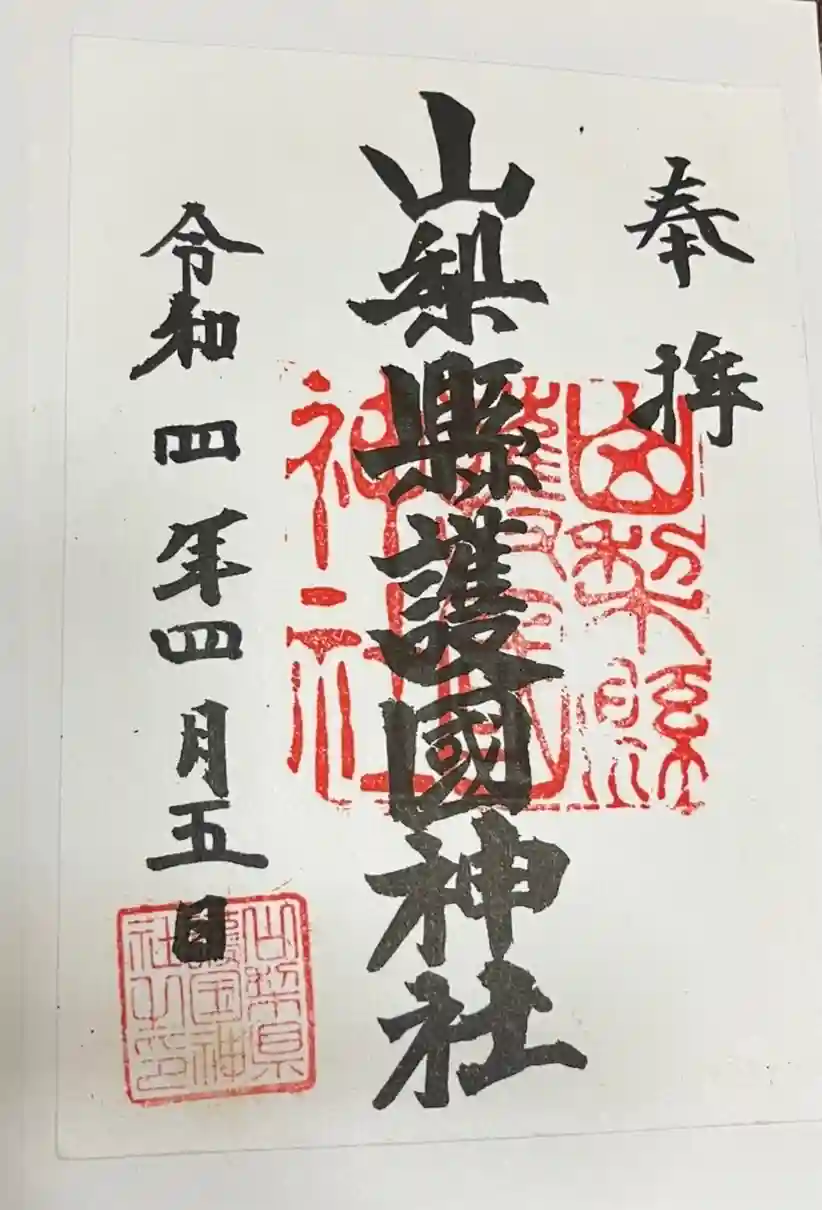 奉拝
山梨縣護國神社
令和四年四月五日
山梨縣護國神社
山梨県護国神社之印